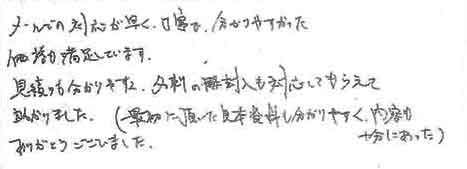 メールでの対応が早く、丁寧で、分かりやすかった
価格も満足しています。
見積りも分かりやすく、名刺の 入も対応してもらえて
助かりました。(最初に頂いた見本資料も分かりやすく、内容も
ありがとうございました。 十分にあった)